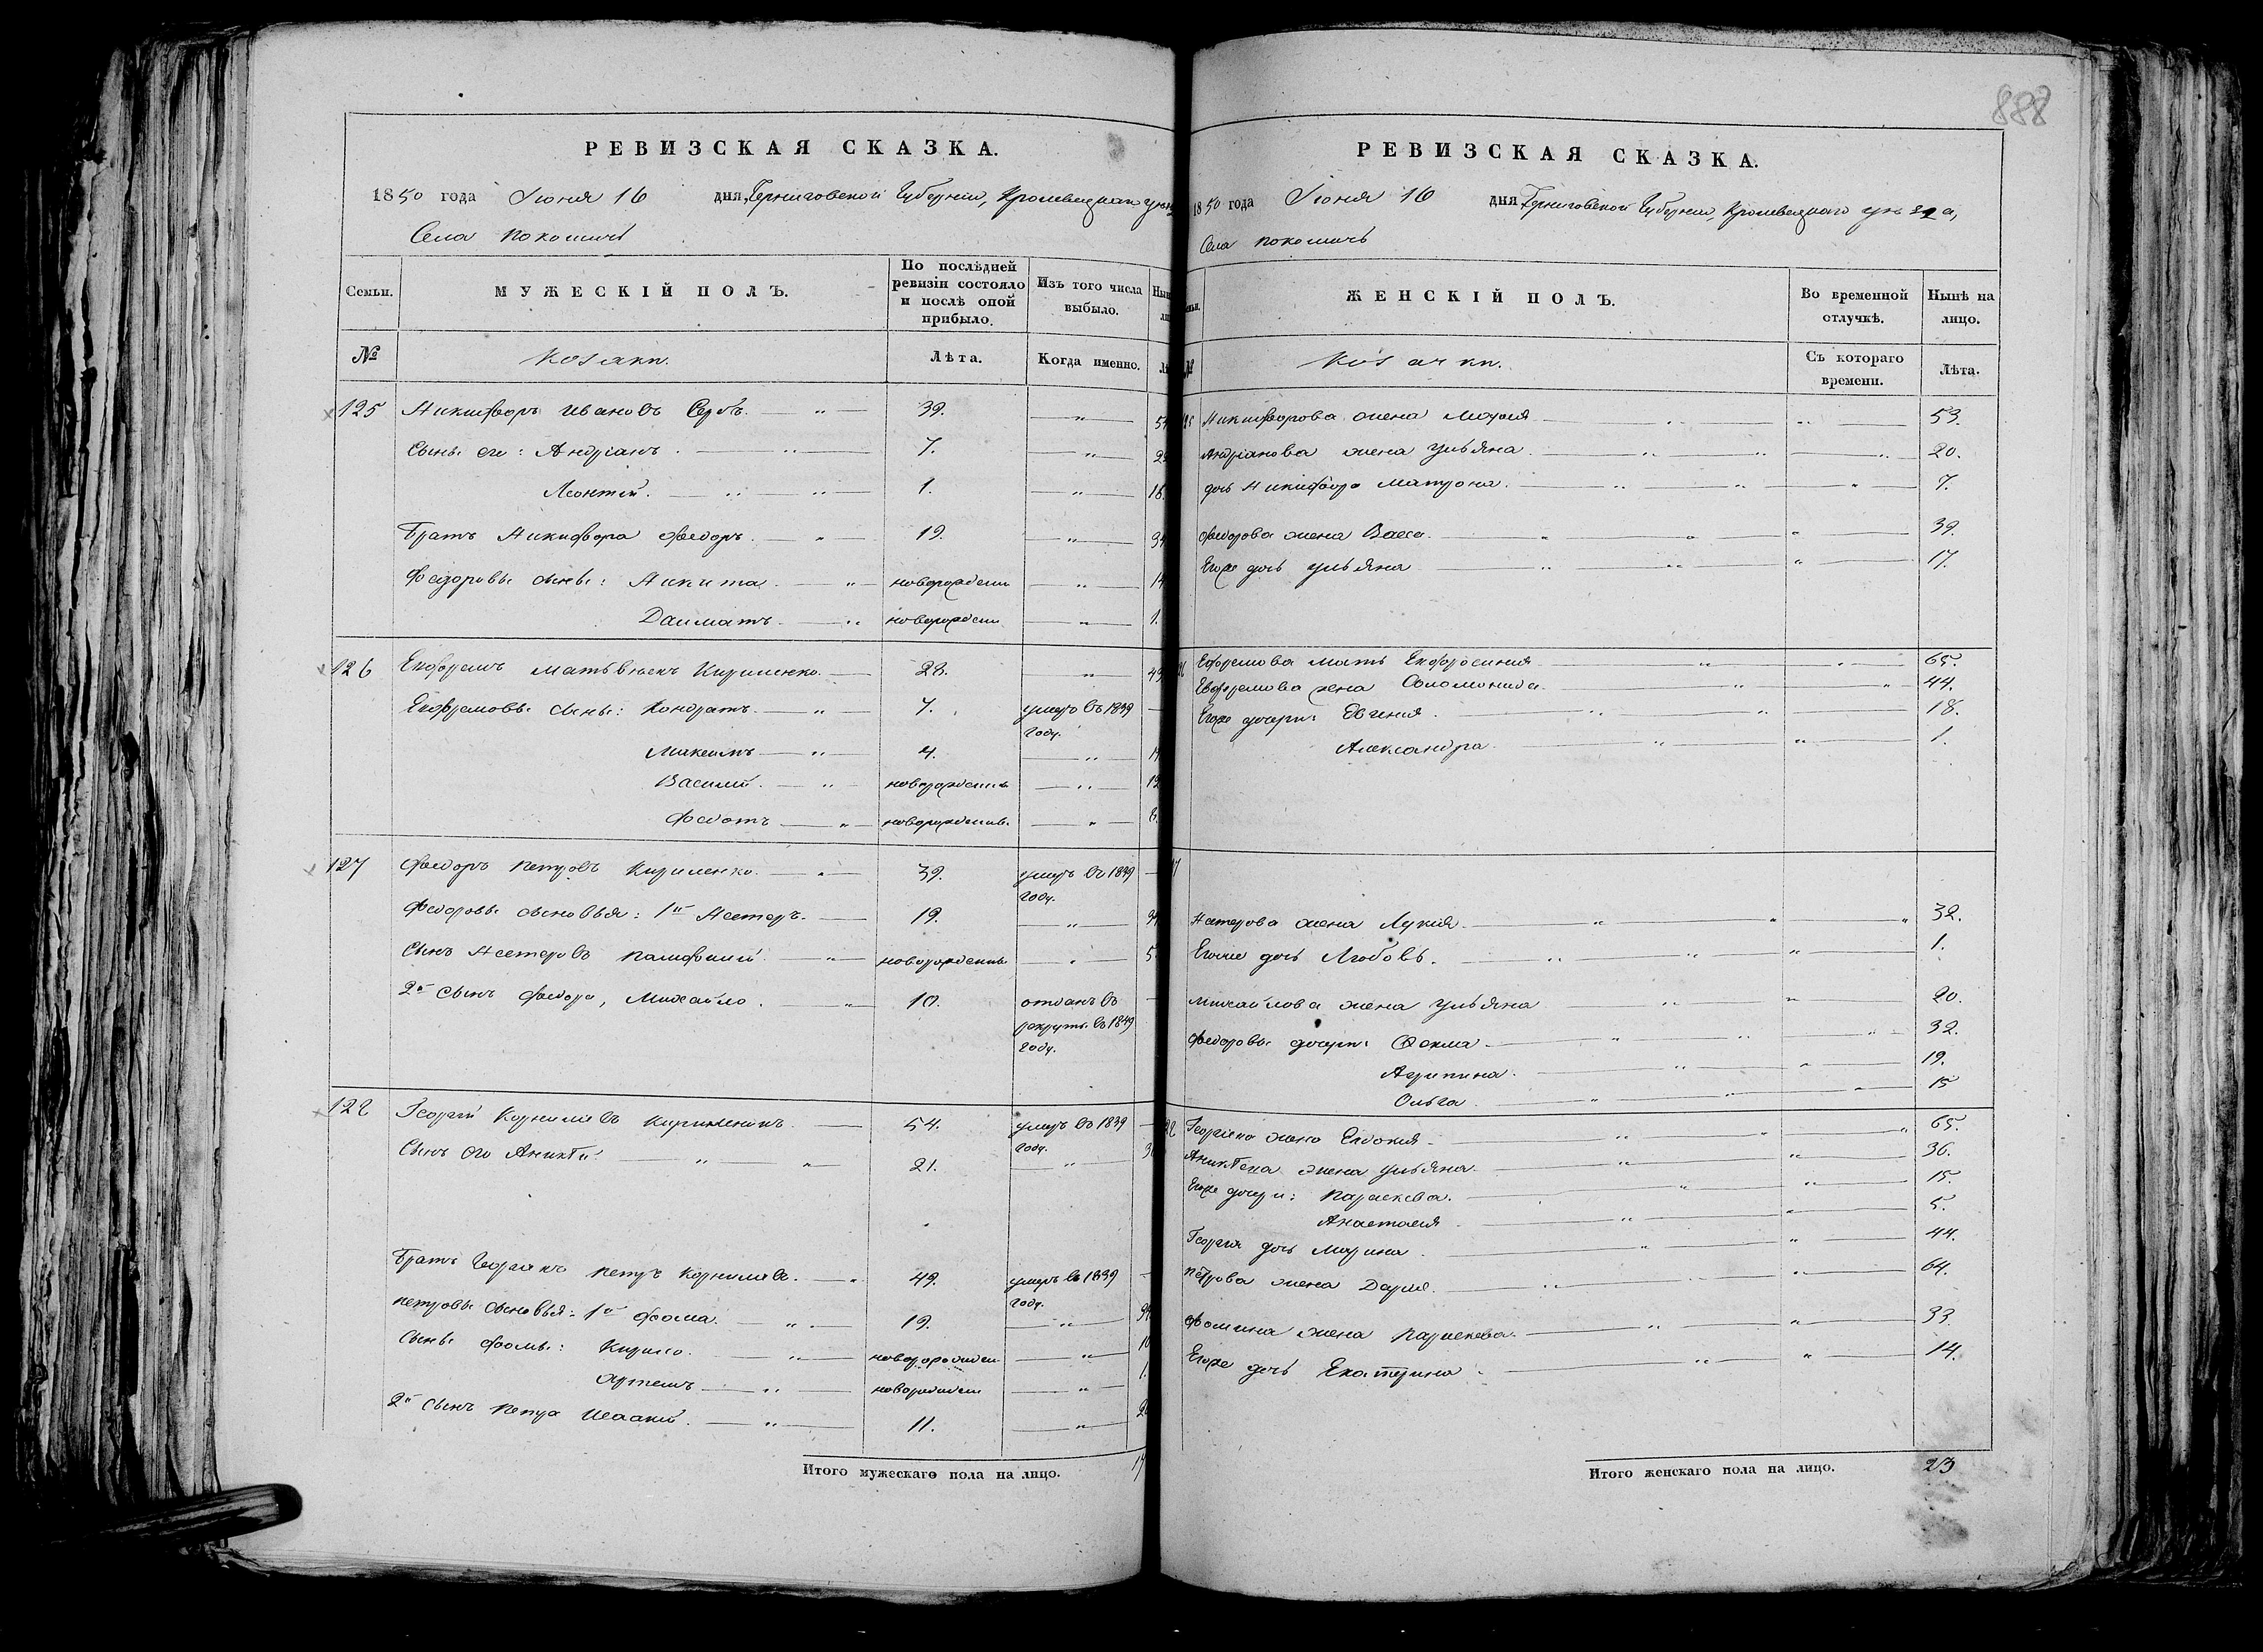 888
РЕВИЗСКАЯ СКАЗКА.
1850 года Июня 16 дня, Черниговской Губернии, Кролевецкаго
Села Покошичъ
Семьи.
МУЖЕСКІЙ ПОЛЪ.
По послѣдней ревизіи состояло и послѣ оной прибыло.
Изъ того числа выбыло.
№
Козаки.
Лѣта.
Когда именно.
125 Никифоръ Ивановъ Сербъ. — " — 39. — " —
Сыны его: Андріанъ. — " — 7. — " —
Леонтій. — " " — 1. — " — 16.
Братъ Никифора Федоръ. — " — 19. — " —
Федоровы сыны: Никита. — " новорожден — " —
Далматъ. — " новорожден — " — 1.
126 Евфремъ Матвѣевъ Кириленко. — 28. — " —
Евфремовы сыны: Кондратъ. — " 7. умеръ въ 1839 —
году.
Максимъ — " 4. — " —
Василій. — " новорожденъ — " —
Федотъ — " новорожденъ. — " — 8.
127 Федоръ Петровъ Кириленко. — " 39. умеръ въ 1839 —
году.
Федоровы сыновья: 1й Нестеръ. — 19. — " —
Сынъ Нестеровъ Памфилій. — " новорожденъ — " — 5
2й сынъ Федора, Михайло. " 10. отданъ въ —
рекруты въ 1849
году.
128 Георгій Корниліевъ Кириленко. — 54. умеръ въ 1839 —
году.
Сынъ его Аникій. — " " — 21. "
Братъ Георгія Петръ Корниліевъ. — " 49. умеръ въ 1839 —
году.
Петровы сыновья: 1й Фома. — " — 19. — " —
Сыны Фомы: Кирило. — " — новорожден — " —
Артемъ — " — новорожден — " — 1.
2й сынъ Петра Исаакій. — " — 11. — " —
Итого мужескаго пола на лицо.
РЕВИЗСКАЯ СКАЗКА.
1850 года Июня 16 дня Черниговской Губернии, Кролевецкаго уѣзда,
Села Покошичъ
ЖЕНСКІЙ ПОЛЪ.
Во временной отлучкѣ.
Нынѣ на лицо.
Козачки.
Съ котораго времени.
Лѣта.
Никифорова жена Марія — " — " — 53.
Андріанова жена Ульяна. — " — " — 20.
дочь Никифора Матрона. — " — " — 7.
Федорова жена Васса. — " — " — 39.
Егоже дочь Ульяна — " — " — 17.
Ефремова мать Евфросинія — " — " — 65.
Евфремова жена Соломонида. — " — " — 44.
Егоже дочери: Евгенія. — " — " — 18.
Александра — " — " — 1.
Нестерова жена Лукія. — " — " — " 32.
Егоже дочь Любовь. — " — " — 1.
Михайлова жена Ульяна — " — " — 20.
Федоровы дочери: Фекла. — " — " — 32.
Агрипина. — " — " — 19.
Ольга. — " — " — 15
Георгіева жена Евдокія — " — " — 65.
Аникіева жена Ульяна. — " — " — 36.
Егоже дочери: Параскева. — " — " — 15.
Анастасія — " — " — 5.
Георгія дочь Марина. — " — " — 44.
Петрова жена Дарія. — " — " — 64.
Фомина жена Параскева. — " — " — 33.
Егоже дочь Екатерина — " — " — 14.
Итого женскаго пола на лицо. 23